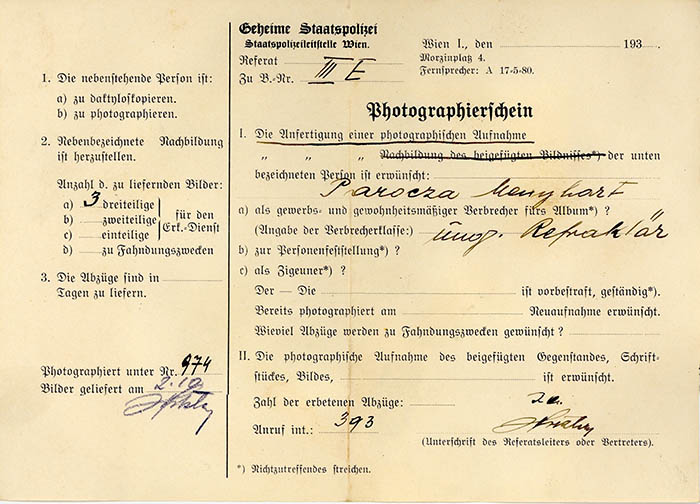 1. Die nebenstehende Person ist:
a) zu daktyloskopieren.
b) zu photographieren.
2. Nebenbezeichnete Nachbildung
ist herzustellen.
Anzahl d. zu liefernden Bilder:
a) 3 dreiteilige
b) zweiteilige
c) einteilige
für den
Erk.-Dienst
d) zu Fahndungszwecken
3. Die Abzüge sind in
Tagen zu liefern.
Photographiert unter Nr. 974
Bilder geliefert am 2.10.
Geheime Staatspolizei
Staatspolizeileitstelle Wien.
Referat
Zu B.-Nr. III E
Wien I., den 193
Morzinplatz 4.
Fernsprecher: A 17-5-80.
Photographierschein
I. Die Anfertigung einer photographischen Aufnahme
„ „ „ Nachbildung des beigefügten Bildnisses*) der unten
bezeichneten Person ist erwünscht:
Parocza Menyhart
a) als gewerbs- und gewohnheitsmäßiger Verbrecher fürs Album*) ?
(Angabe der Verbrecherklasse:) ung. Refraktär
b) zur Personenfeststellung*) ?
c) als Zigeuner*) ?
Der — Die ist vorbestraft, geständig*).
Bereits photographiert am Neuaufnahme erwünscht.
Wieviel Abzüge werden zu Fahndungszwecken gewünscht ?
II. Die photographische Aufnahme des beigefügten Gegenstandes, Schrift-
stückes, Bildes, ist erwünscht.
Zahl der erbetenen Abzüge:
Anruf int.: 393
(Unterschrift des Referatsleiters oder Vertreters).
*) Nichtzutreffendes streichen.